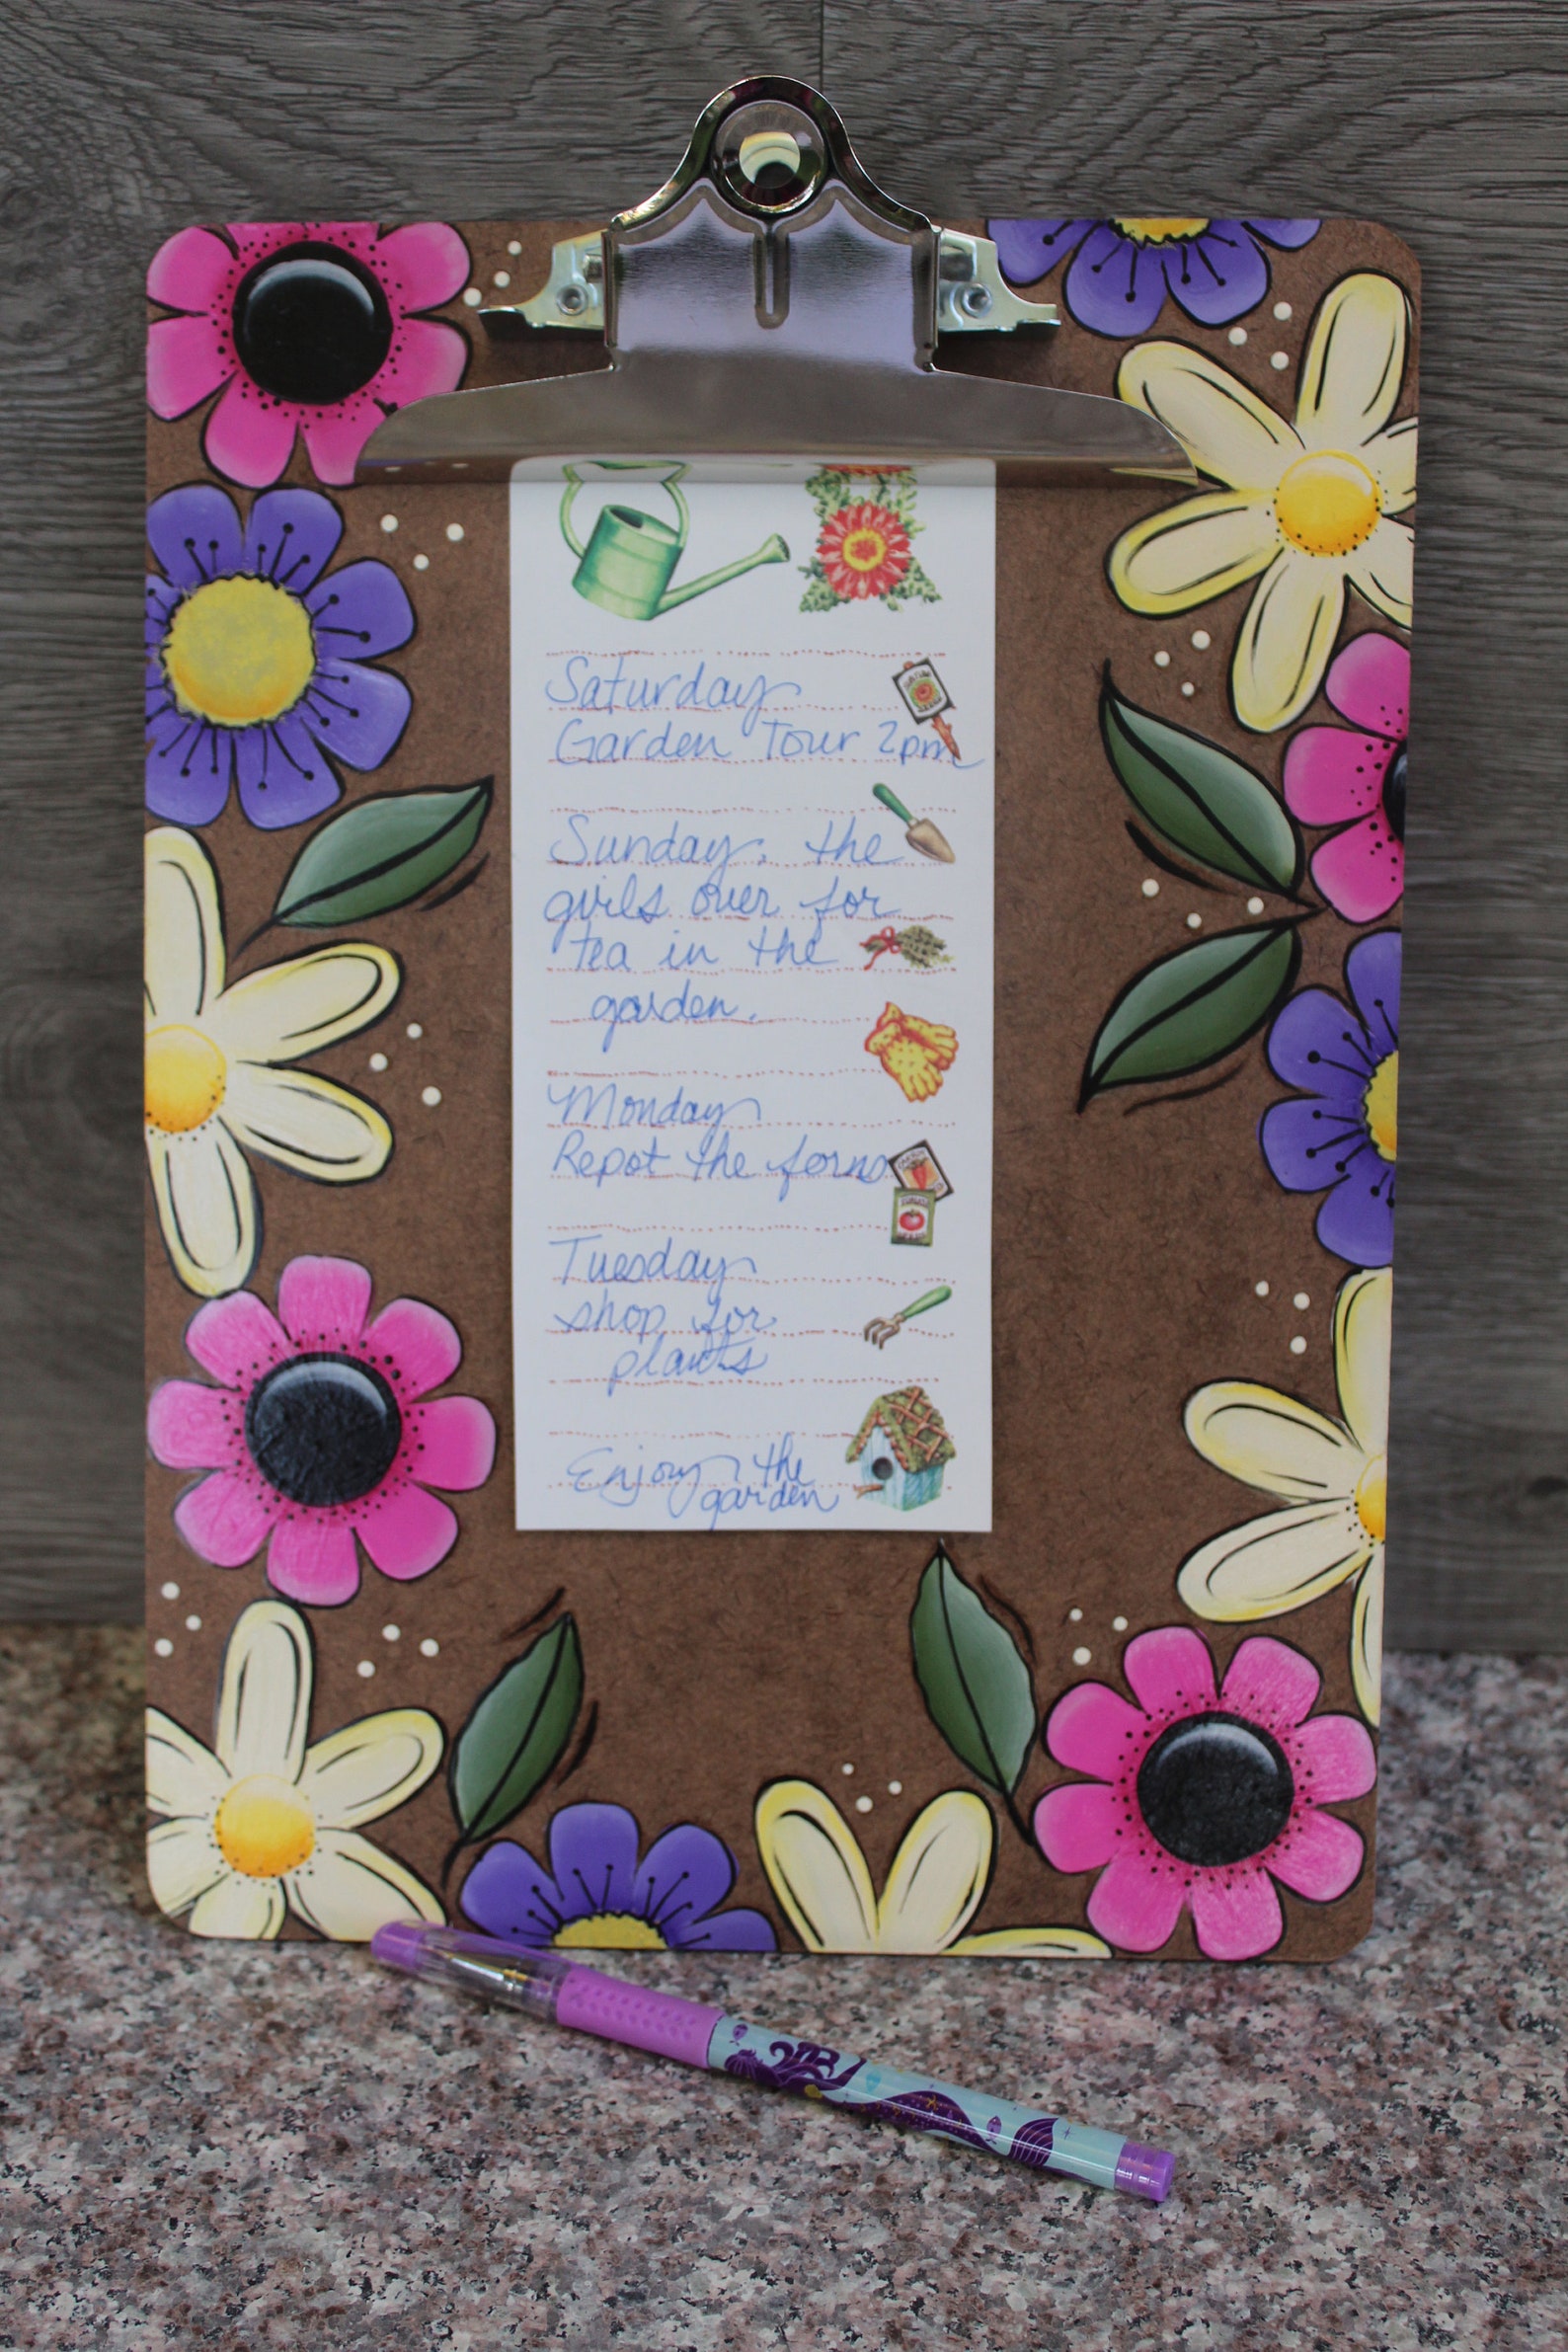 Saturday
Garden Tour 2pm
Sunday. the
girls over for
tea in the
garden.
Monday
Repot the ferns
Tuesday
shop for
plants
Enjoy the
garden